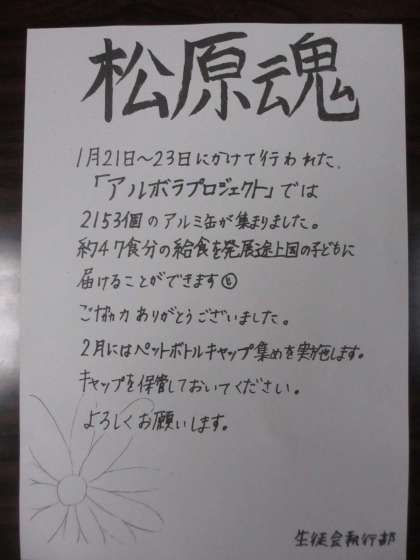 松原魂
1月21日～23日にかけて行われた、
「アルボラプロジェクト」では
2153個のアルミ缶が集まりました。
約47食分の給食を発展途上国の子どもに
届けることができます
ご協力ありがとうございました。
2月にはペットボトルキャップ集めを実施します。
キャップを保管しておいてください。
よろしくお願いします。
生徒会執行部